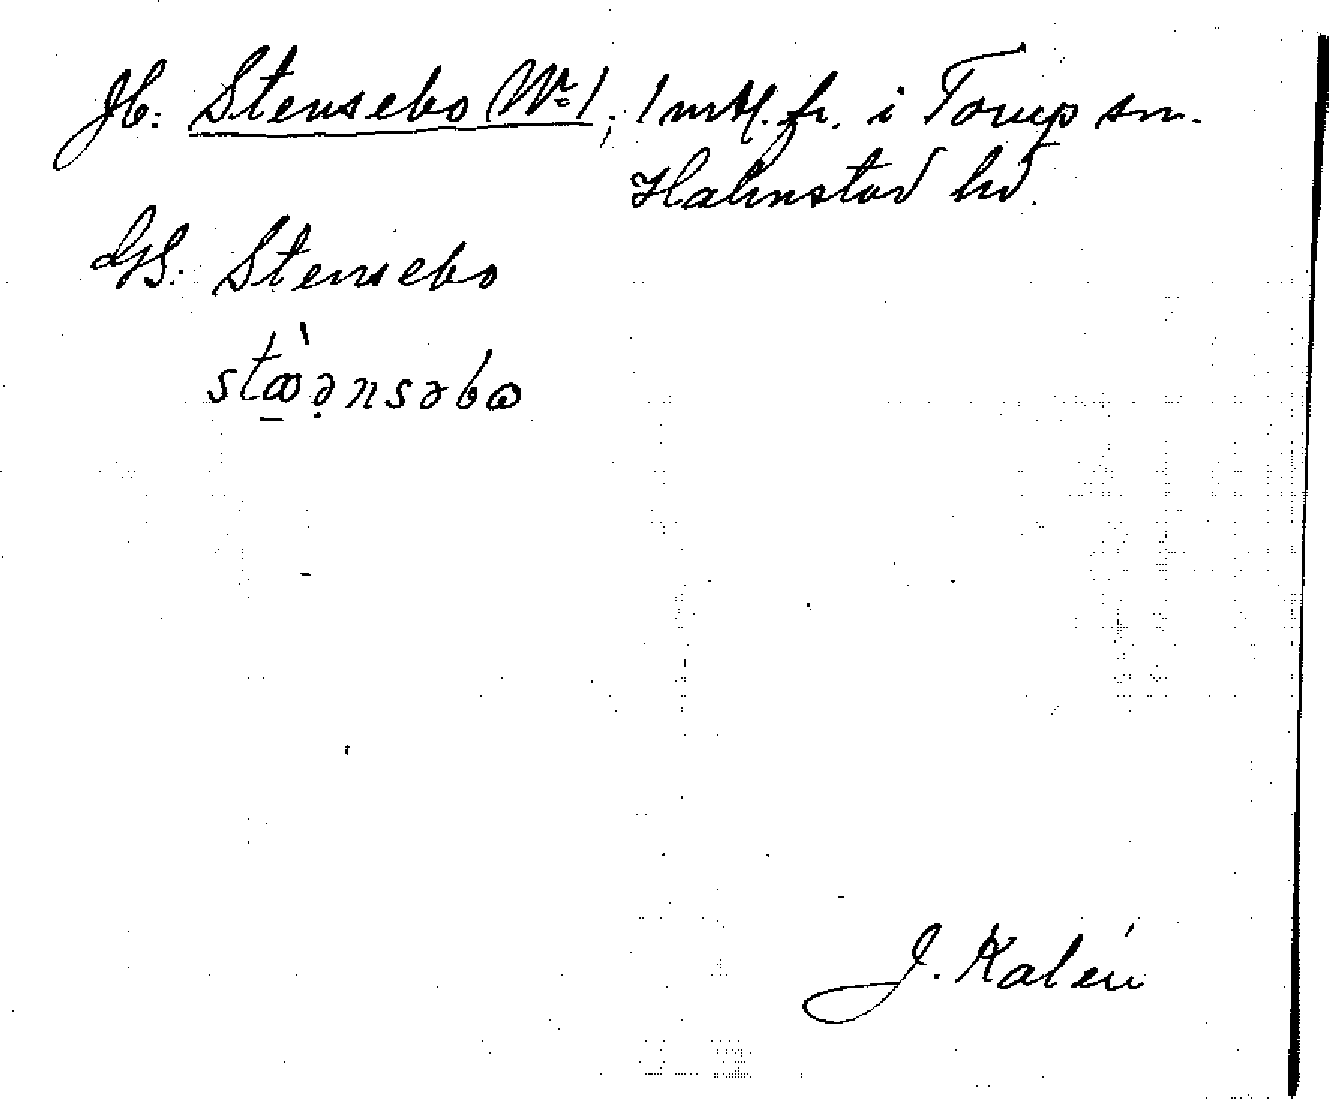 Jb: Stensebo Nr 1; 1 mtl. fr. i Torup sn.
Halmstad hd.
GS: Stensebo
stæ̀ə̣nsəbω
J. Kalén